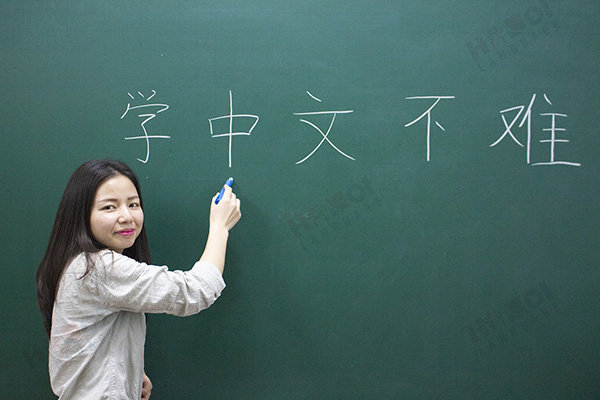 学中文不难